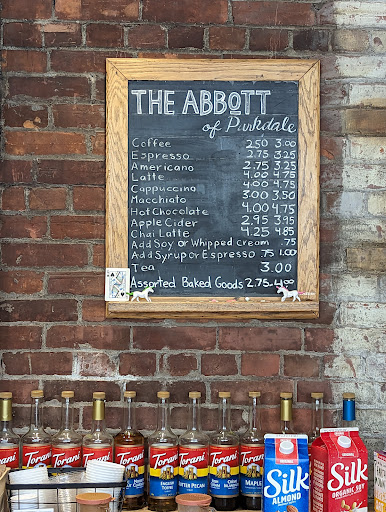 THE ABBOTT
of Parkdale
Coffee 2.50 3.00
Espresso 2.75 3.25
Americano 2.75 3.25
Latte 4.00 4.75
Cappuccino 4.00 4.75
Macchiato 3.00 3.50
Hot Chocolate 4.00 4.75
Apple Cider 2.95 3.95
Chai Latte 4.25 4.85
Add Soy or Whipped Cream .75
Add Syrup or Espresso .75 1.00
Tea 3.00
Assorted Baked Goods 2.75-4.00
TORANI
TORANI
TORANI
Torani
Torani
Torani
Torani
Torani
MAPLE
Silk
ALMOND
ORGANIC SOY
Silk